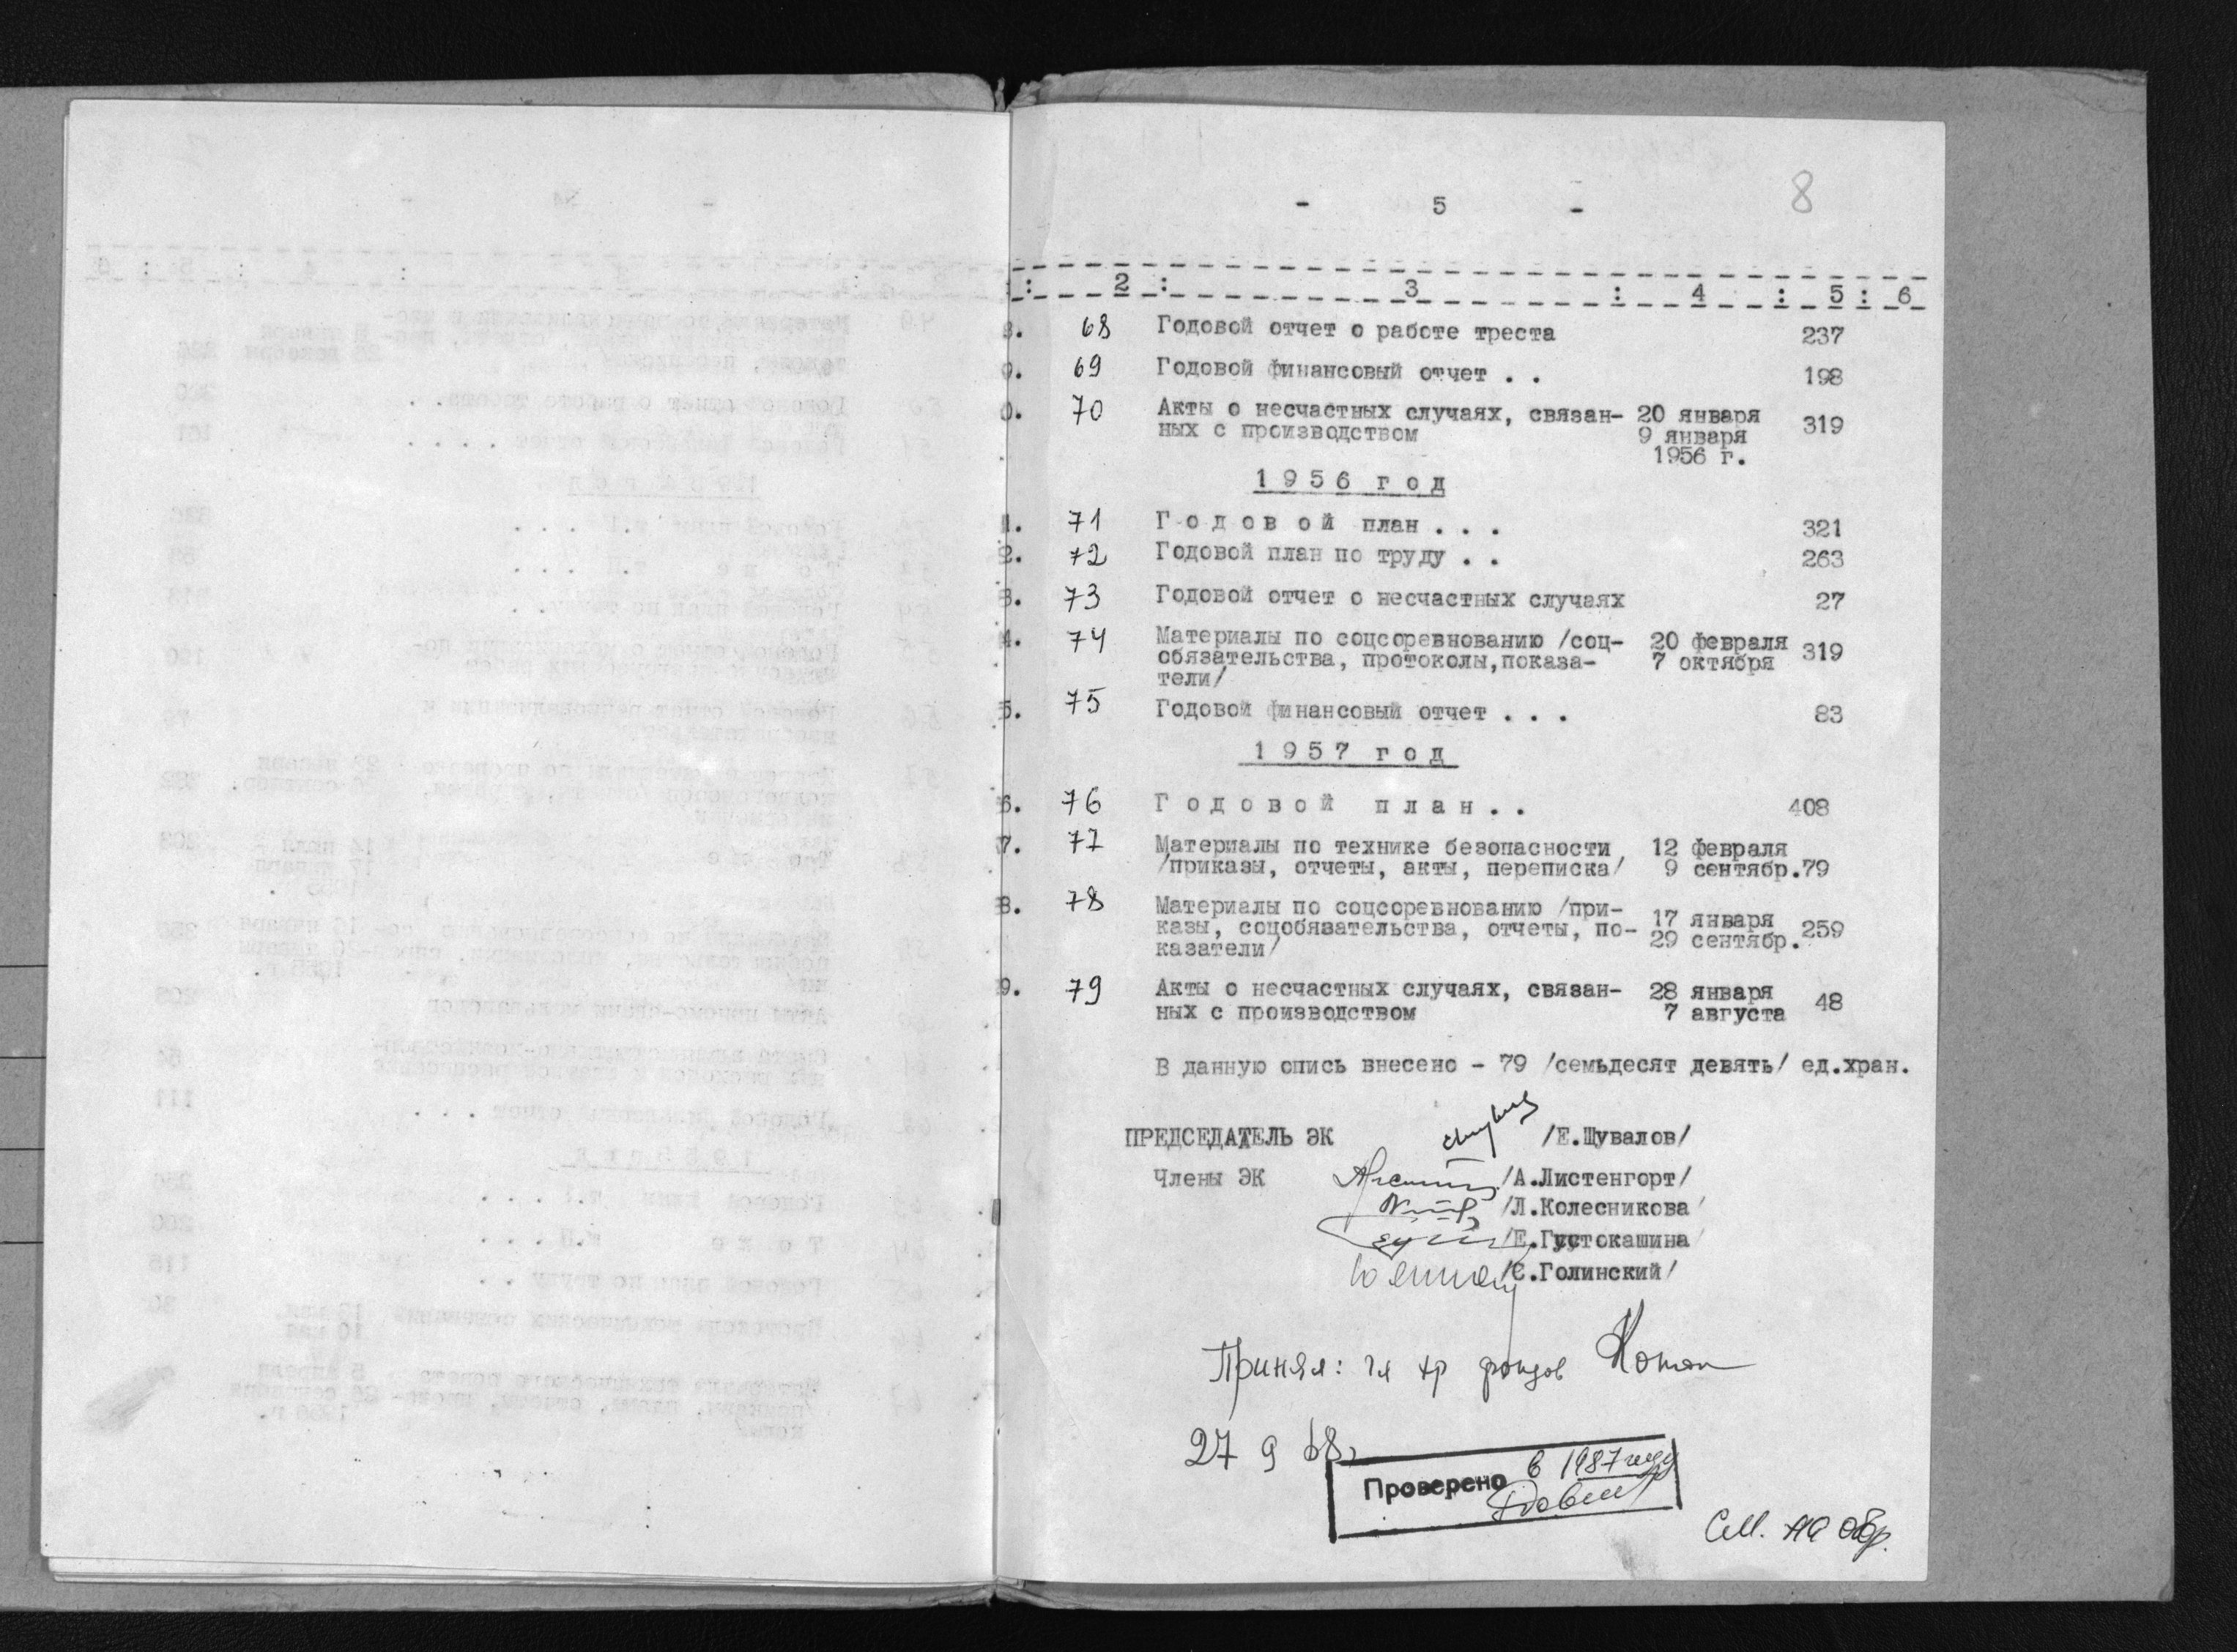 - 5 -
8
: 2 : 3 : 4 : 5 : 6
8. 68 Годовой отчет о работе треста 237
9. 69 Годовой финансовый отчет . . 198
0. 70 Акты о несчастных случаях, связан- 20 января 319
ных с производством 9 января
1956 г.
1956 год
1. 71 Годовой план . . . 321
2. 72 Годовой план по труду . . 263
3. 73 Годовой отчет о несчастных случаях 27
4. 74 Материалы по соцсоревнованию /соц- 20 февраля 319
обязательства, протоколы,показа- 7 октября
тели/
5. 75 Годовой финансовый отчет . . . 83
1957 год
6. 76 Годовой план . . 408
7. 77 Материалы по технике безопасности 12 февраля
/приказы, отчеты, акты, переписка/ 9 сентябр.79
8. 78 Материалы по соцсоревнованию /при- 17 января
казы, соцобязательства, отчеты, по- 29 сентябр. 259
казатели/
9. 79 Акты о несчастных случаях, связан- 28 января 48
ных с производством 7 августа
В данную опись внесено - 79 /семьдесят девять/ ед.хран.
ПРЕДСЕДАТЕЛЬ ЭК /Е.Шувалов/
Члены ЭК /А.Листенгорт/
/Л.Колесникова/
/Е.Густокашина/
/С.Голинский/
Принял: гл хр фондов
27 9 68г
Проверено в 1987 году
См. на обр.